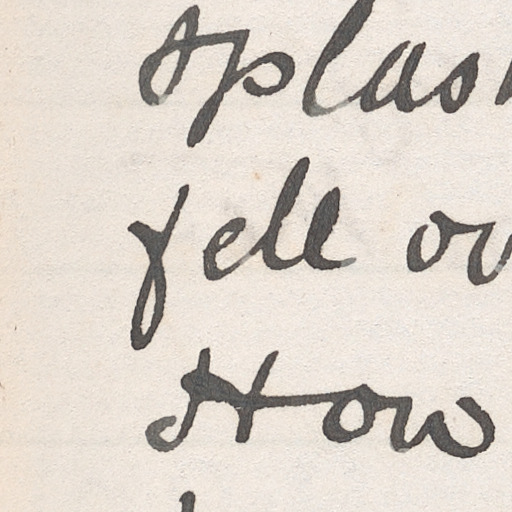 splash
fell ov
How